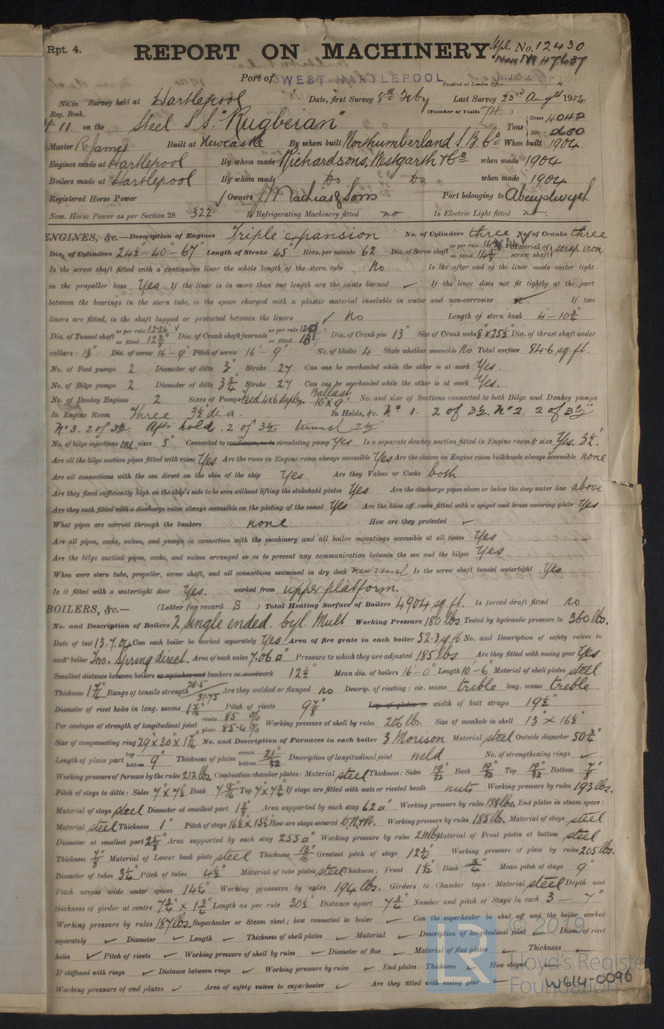 Rpt. 4.
REPORT ON MACHINERY.
Spl. No. 12430
No. 47637
Port of WEST HARTLEPOOL
Received at London Office
No. in Survey held at Hartlepool Date, first Survey 8th Feby Last Survey 23rd Augst 1904
Reg. Book. (Number of Visits 74)
411 on the Steel S.S. "Rugbeian" Tons Gross 4042 Net 2650
Master R. James Built at Newcastle By whom built Northumberland S.B. Co When built 1904
Engines made at Hartlepool By whom made Richardsons, Westgarth & Co when made 1904
Boilers made at Hartlepool By whom made Do Do when made 1904
Registered Horse Power Owners J. Mathias & Sons Port belonging to Aberystwyth
Nom. Horse Power as per Section 28 322 Is Refrigerating Machinery fitted no Is Electric Light fitted no
ENGINES, &c.—Description of Engines Triple expansion No. of Cylinders three No. of Cranks three
Dia. of Cylinders 24½-40-67" Length of Stroke 45" Revs. per minute 62 Dia. of Screw shaft as per rule as fitted 14½" Material of screw shaft scrap iron
Is the screw shaft fitted with a continuous liner the whole length of the stern tube No Is the after end of the liner made water tight
in the propeller boss Yes If the liner is in more than one length are the joints burned If the liner does not fit tightly at the part
between the bearings in the stern tube, is the space charged with a plastic material insoluble in water and non-corrosive If two
liners are fitted, is the shaft lapped or protected between the liners No Length of stern bush 4-10½"
Dia. of Tunnel shaft as per rule as fitted Dia. of Crank shaft journals as per rule as fitted Dia. of Crank pin 13" Size of Crank webs 8"x25½" Dia. of thrust shaft under
collars 13" Dia. of screw 16-9" Pitch of screw 16-9" No. of blades 4 State whether moveable No Total surface 84.6 sq. ft.
No. of Feed pumps 2 Diameter of ditto 3" Stroke 27 Can one be overhauled while the other is at work Yes
No. of Bilge pumps 2 Diameter of ditto 3¾" Stroke 27 Can one be overhauled while the other is at work Yes.
No. of Donkey Engines 2 Sizes of Pumps Feed 4x6 duplex Ballast 10x9" No. and size of Suctions connected to both Bilge and Donkey pumps
In Engine Room Three 3½" dia. In Holds, &c. No 1. 2 of 3½ No 2. 2 of 3½"
No 3. 2 of 3½ Aft hold. 2 of 3½ tunnel 2½
No. of bilge injections one sizes 5" Connected to circulating pump Yes Is a separate donkey suction fitted in Engine room & size Yes. 3½".
Are all the bilge suction pipes fitted with roses Yes Are the roses in Engine room always accessible Yes Are the sluices on Engine room bulkheads always accessible none
Are all connections with the sea direct on the skin of the ship Yes Are they Valves or Cocks both
Are they fixed sufficiently high on the ship's side to be seen without lifting the stokehold plates Yes Are the discharge pipes above or below the deep water line above
Are they each fitted with a discharge valve always accessible on the plating of the vessel Yes Are the blow off cocks fitted with a spigot and brass covering plate Yes
What pipes are carried through the bunkers none How are they protected
Are all pipes, cocks, valves, and pumps in connection with the machinery and all boiler mountings accessible at all times Yes
Are the bilge suction pipes, cocks, and valves arranged so as to prevent any communication between the sea and the bilges Yes
When were stern tube, propeller, screw shaft, and all connections examined in dry dock new vessel Is the screw shaft tunnel watertight Yes
Is it fitted with a watertight door Yes. worked from upper platform.
BOILERS, &c.— (Letter for record S) Total Heating Surface of Boilers 4904 sq. ft. Is forced draft fitted no
No. and Description of Boilers 2 Single ended. Cyl Mult Working Pressure 180 lbs Tested by hydraulic pressure to 360 lbs.
Date of test 13.7.04 Can each boiler be worked separately Yes Area of fire grate in each boiler 52.3 sq ft No. and Description of safety valves to
each boiler Two. Spring direct. Area of each valve 7.06□" Pressure to which they are adjusted 185 lbs Are they fitted with easing gear Yes
Smallest distance between boilers and bunkers or woodwork 12½" Mean dia. of boilers 16-0" Length 10-6" Material of shell plates steel
Thickness Range of tensile strength 28.5 31.75 Are they welded or flanged no Descrip. of riveting: cir. seams treble long. seams treble
Diameter of rivet holes in long. seams Pitch of rivets 9⅞" Lap of plates or width of butt straps 19½"
Per centages of strength of longitudinal joint rivets 85 % plate 85.4 % Working pressure of shell by rules 206 lbs. Size of manhole in shell 13" x 16½"
Size of compensating ring No. and Description of Furnaces in each boiler 3 Morison Material steel Outside diameter 50¾"
Length of plain part top bottom 9" Thickness of plates crown bottom Description of longitudinal joint weld No. of strengthening rings
Working pressure of furnace by the rules 212 lbs. Combustion chamber plates: Material steel Thickness: Sides 19/32 Back 19/32 Top 19/32 Bottom 7/8
Pitch of stays to ditto: Sides Back Top If stays are fitted with nuts or riveted heads nuts Working pressure by rules 193 lbs.
Material of stays steel Diameter at smallest part Area supported by each stay 62□" Working pressure by rules 188 lbs. End plates in steam space:
Material steel Thickness 1" Pitch of stays How are stays secured Working pressure by rules 185 lbs. Material of stays steel
Diameter at smallest part Area supported by each stay 255□" Working pressure by rules 211 lbs Material of Front plates at bottom steel
Thickness 7/8 Material of Lower back plate steel Thickness Greatest pitch of stays Working pressure of plate by rules 205 lbs.
Diameter of tubes 3¼" Pitch of tubes 4½" Material of tube plates steel Thickness: Front Back Mean pitch of stays 9"
Pitch across wide water spaces 14¼" Working pressures by rules 194 lbs. Girders to Chamber tops: Material steel Depth and
thickness of girder at centre Length as per rule 30½ Distance apart 7¾" Number and pitch of Stays in each 3 — 7"
Working pressure by rules 187 lbs. Superheater or Steam chest; how connected to boiler Can the superheater be shut off and the boiler worked
separately Diameter Length Thickness of shell plates Material Description of longitudinal joint Diam. of rivet
holes Pitch of rivets Working pressure of shell by rules Diameter of flue Material of flue plates Thickness
If stiffened with rings Distance between rings Working pressure by rules End plates: Thickness How stayed
Working pressure of end plates Area of safety valves to superheater Are they fitted with easing gear
© 2019
Lloyd's Register
Foundation
W614-0096